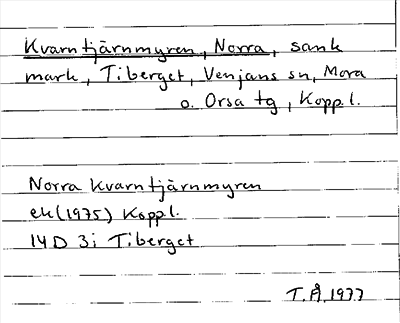 Kvarntjärnmyren, Norra, sank
mark, Tiberget, Venjans sn, Mora
o. Orsa tg, Koppl.
Norra Kvarntjärnmyren
ek(1975) Koppl.
14D 3i Tiberget
T.Å.1977